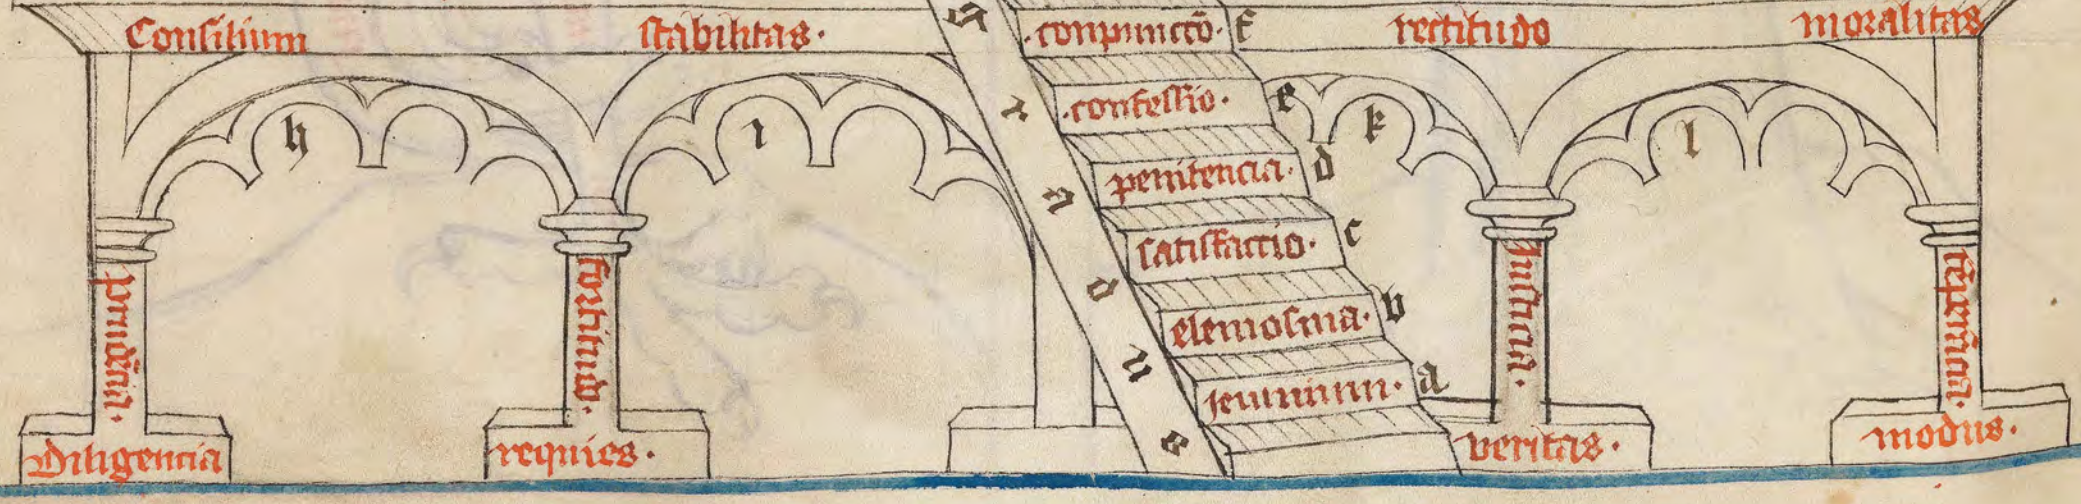 Consilium
stabilitas.
.conpunctō.
f
rectitudo
moralitas
h
i
.confessio.
e
k
l
penitencia.
d
satisfactio.
c
elemosina.
b
jeiunium.
a
prudēcia.
fortitudo.
iusticia.
Diligencia
requies.
veritas.
modus.